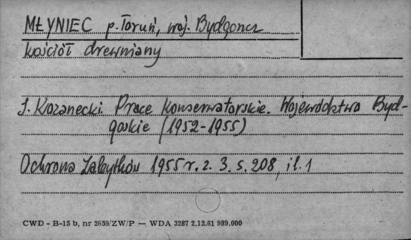 MŁYNIEC p. Toruń, woj. Bydgoszcz
kościół drewniany
J. Kozanecki Prace Konserwatorskie. Województwo Byd-
goskie (1952-1955)
Ochrona Zabytków 1955 r. z. 3. s. 208, il. 1
CWD - B-15 b, nr 2659/ZW/P — WDA 3287 2.12.61 999.000